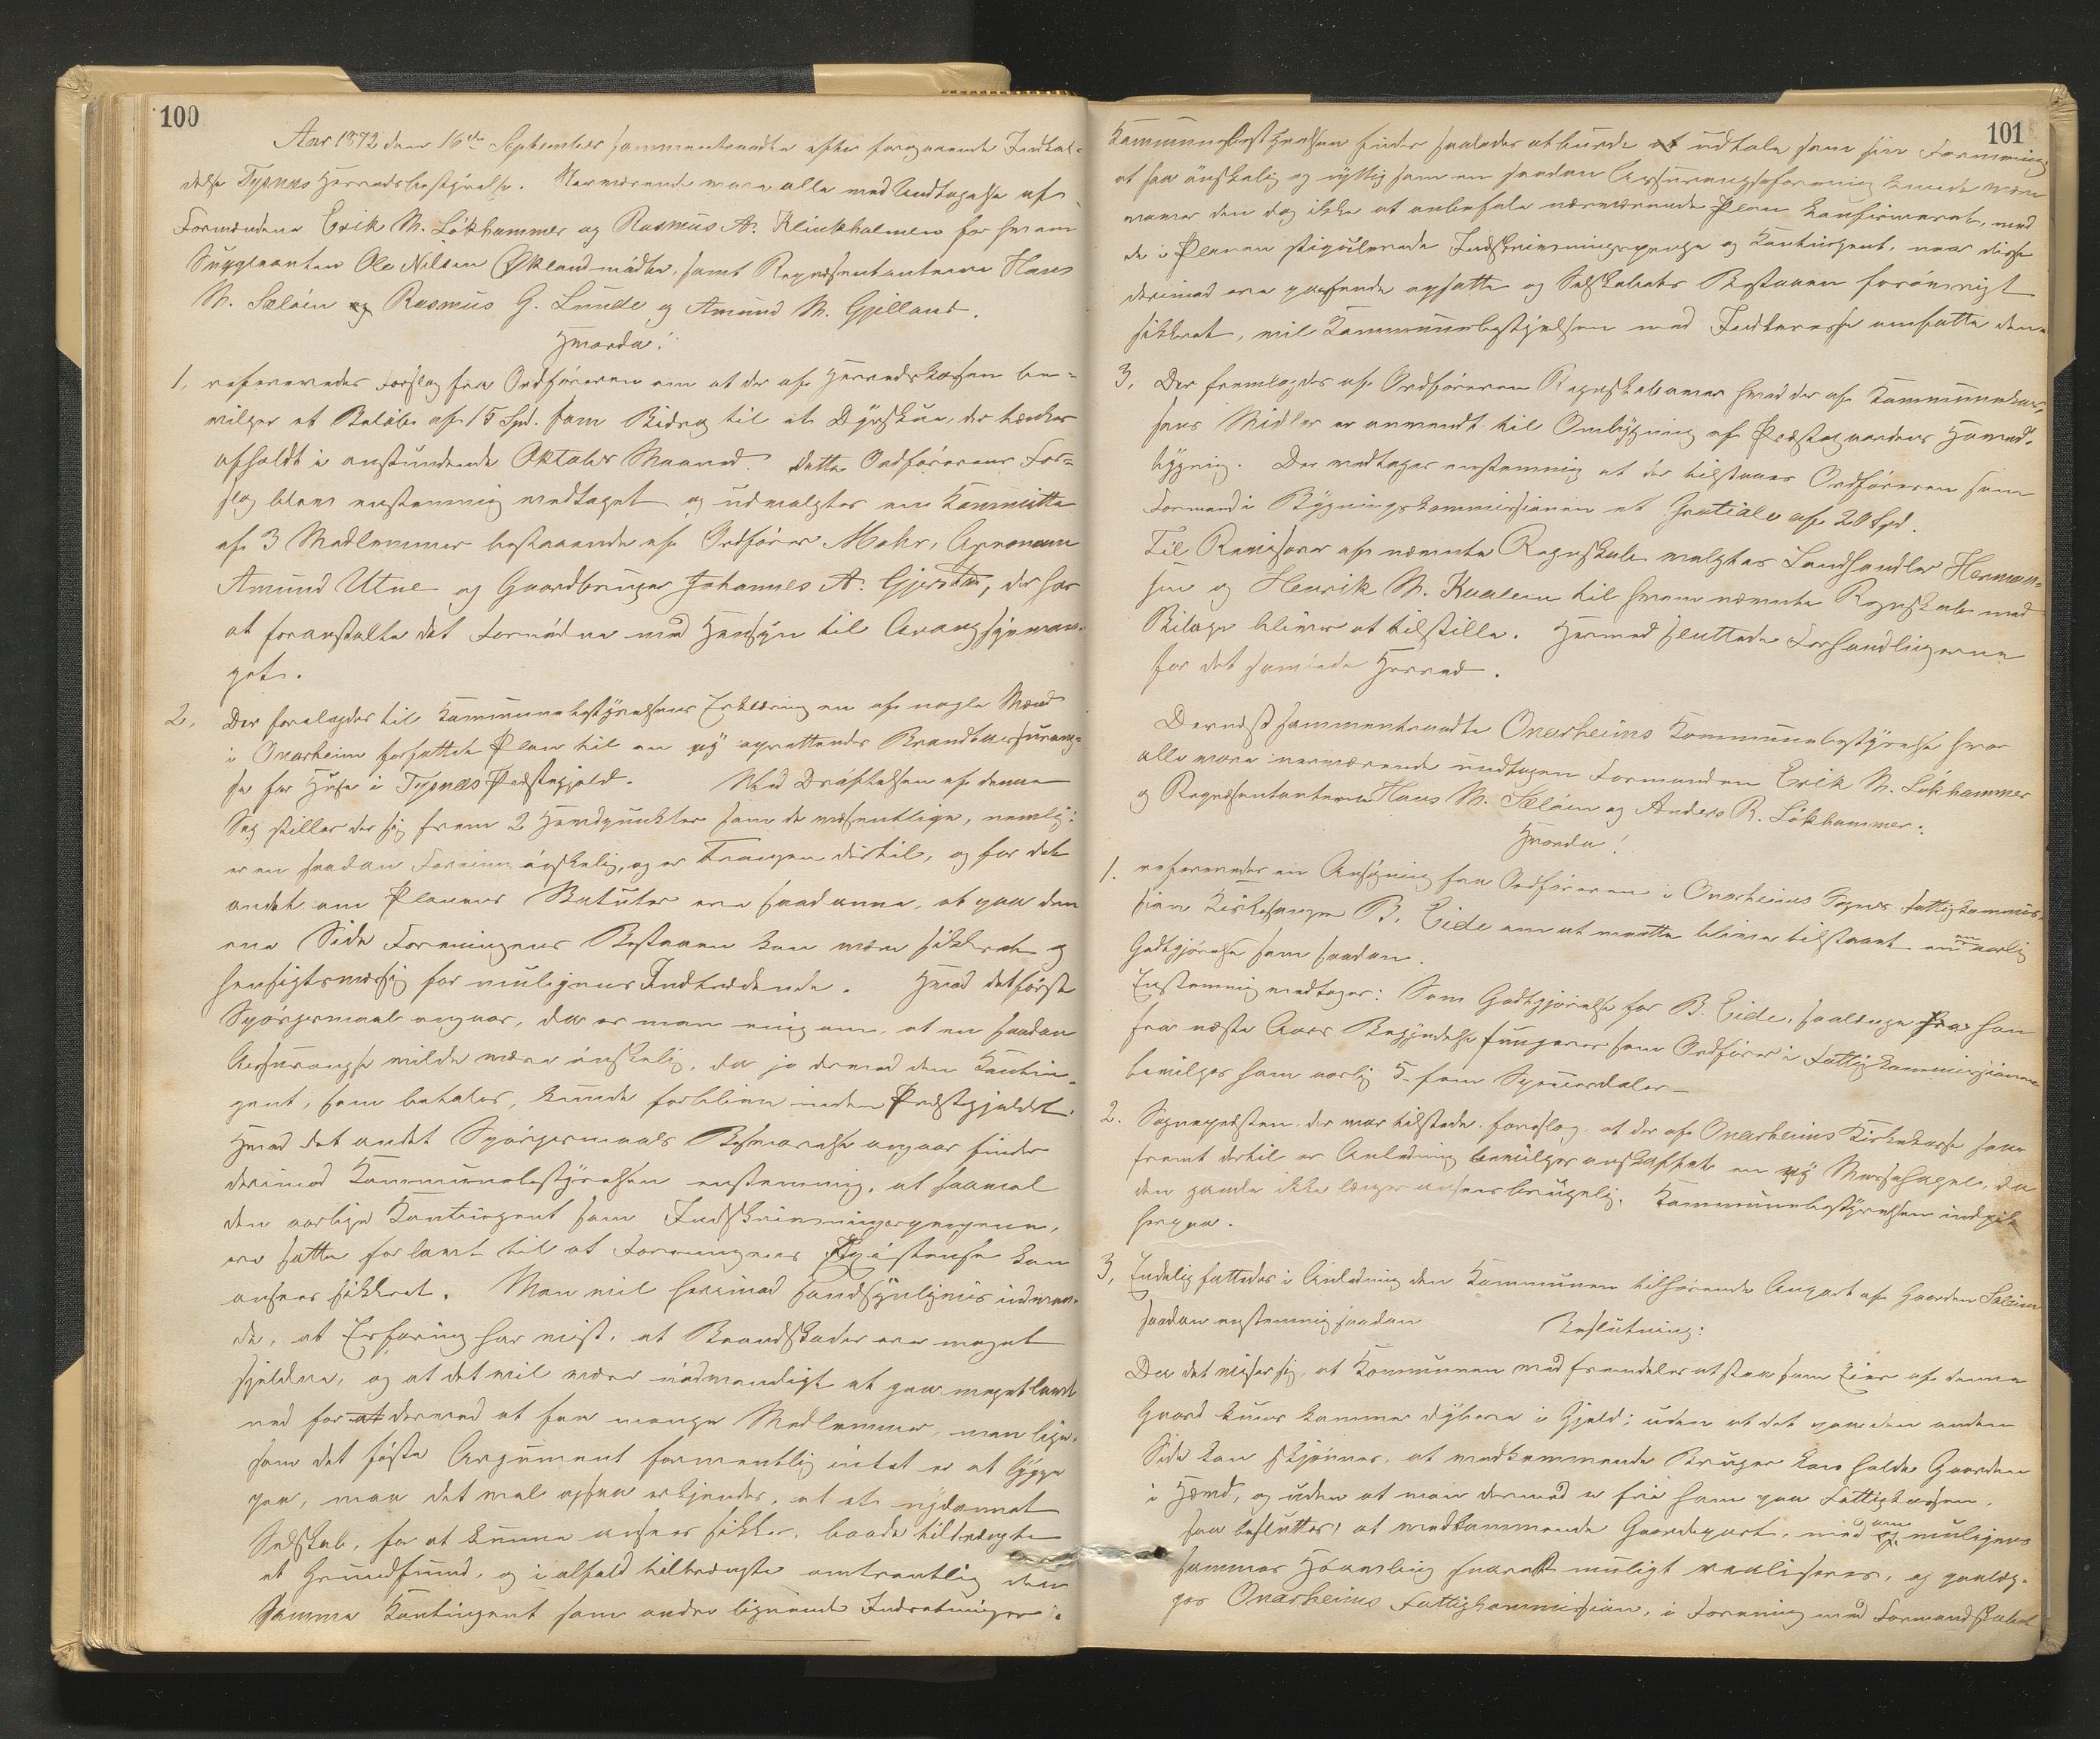 100
Aar 1872 den 16de September sammentraadte efter foregaaende Indkal-
delse Tysnæs Herredsbestyrelse. Nærværende vare alle med Undtagelse af
Formændene Erik M. Lökhammer og Rasmus A. Klinkholmen for hvem
Suppleanten Ole Nilsen Økland mödte, samt Repræsentanterne Hans
M. Sælöin og Rasmus G. Lunde og Amund M. Gjelland.
Hvorda!
1, refereredes Forslag fra Ordföreren om at der af Herredskassen be-
vilges et Belöb af 15 Spd. som Bidrag til et Dyrskue, der tænkes
afholdt i anstundende Oktober Maaned. Dette Ordförerens For-
slag blev enstemmig vedtaget og udvalgtes en Committe
af 3 Medlemmer bestaaende af Ordförer Mohr, Agronom
Amund Utne og Gaardbruger Johannes A. Gjerstad, der har
at foranstalte det Fornödne med Hensyn til Arrangseman-
get.
2, Der forelagdes til Kommunebestyrelsens Erklæring en af nogle Mænd
i Onarheim forfattet Plan til en ny oprettendes Brandtassuran-
se for Huse i Tysnæs Præstegjeld. Med Dröftelsen af denne
Sag stiller der sig frem 2 Hovedpunkter som de væsentlige, nemlig:
er en saadan Forening önskelig, og er Trangen dertil, og for det
andet om Planens Statuter ere saadanne, at paa den
ene Side Foreningens Bestaaen kan være sikkret og
hensigtsmæssig for muligens Indtrædende. Hvad det förste
Spörgsmaal angaar, da er man enig om, at en saadan
Assurangse vilde være önskelig, da jo derved den Contin-
gent, som betales, kunde forblive inden Præstegjeldet.
Hvad det andet Spörgsmaals Besvarelse angaar finder
derimod Kommunebestyrelsen enstemmig, at saavel
den aarlige Kontingent som Indskrivningspengene,
ere satte for lavt til at Foreningens Existense kan
ansees sikkret. Man vil herimod sandsynligvis indven-
de, at Erfaring har vist, at Brandskader ere meget
sjeldne, og at det vil være nödvendigt at gaa meget lavt
ned for at derved at faa mange Medlemmer, men lige-
som det sidste Argument formentlig intet er at bygge
paa, maa det vel ogsaa erkjendes, at et nydannet
Selskab, for at kunne ansees sikker, baade tiltrængte
et Grundfund, og i alfald tiltrængte omtrentlig den
samme Kontingent som andre lignende Indretninger.
101
Kommunebestyrelsen finder saaledes at burde at udtale som sin Formening
at saa önskelig og nyttig som en saadan Assurangseforening kunde være
vover den dog ikke at anbefale nærværende Plan konfirmeret, med
de i Planen stipulerede Indskrivningspenge og Kontingent, naar disse
derimod ere passende opsatte og Selskabets Bestaaen forövrigt
sikkret, vil Kommunebestyrelsen med Interesse omfatte den.
3, Der fremlagdes af Ordföreren Regnskab over hvad der af Kommunekas-
sens Midler er anvendt til Ombygning af Præstegaardens Hoved-
bygning. Der vedtages enstemmig at der tilstaaes Ordföreren som
Formand i Bygningskommissionen et Gratiale af 20 Spd.
Til Revisorer af nævnte Regnskab valgtes Landhandler Herman-
sen og Henrik M. Kaalen til hvem nævnte Regnskab med
Bilage bliver at tilstille. Hermed sluttede Forhandlingerne
for det samlede Herred.
Dernæst sammentraadte Onarheims Kommunebestyrelse hvor
alle vare nærværende undtagen Formanden Erik M. Lökhammer
og Repræsentanterne Hans M. Sælöin og Anders R. Lökhammer.
Hvorda!
1. refereredes en Ansögning fra Ordföreren i Onarheims Sogns Fattigkommis-
sion Kirkesanger B. Eide om at maatte blive tilstaaet en en aarlig
Godtgjörelse som saadan.
Enstemmig vedtages: Som Godtgjörelse for B. Eide, saalænge fra han
fra næste Aars Begyndelse fungerer som Ordförer i Fattigkommissionen
bevilges ham aarlig 5- fem Speciesdaler-
2. Sognepræsten, der var tilstede, foreslog, at der af Onarheims Kirkekasse saa-
fremt dertil er Anledning bevilges anskaffet en ny Messehagel, da
den gamle ikke længer ansees brugelig. Kommunebestyrelsen indgik
herpaa.
3, Endelig fattedes i Anledning den Kommunen tilhörende Anpart af Gaarden Sælöin
saadan enstemmig saadan Beslutning:
Da det viser sig, at Kommunen ved fremdeles at staa som Eier af denne
Gaard kuns kommer dybere i Gjeld; uden at det paa den anden
Side kan skjönnes, at vedkommende Bruger kan holde Gaarden
i Hævd, og uden at man derved er fri ham paa Fattigkassen,
saa besluttes, at vedkommende Gaardepart, med og om muligens
sammes Havnling snarest muligt realiseres, og paalæg-
ges Onarheims Fattigkommission, i Forening med Formandskabet